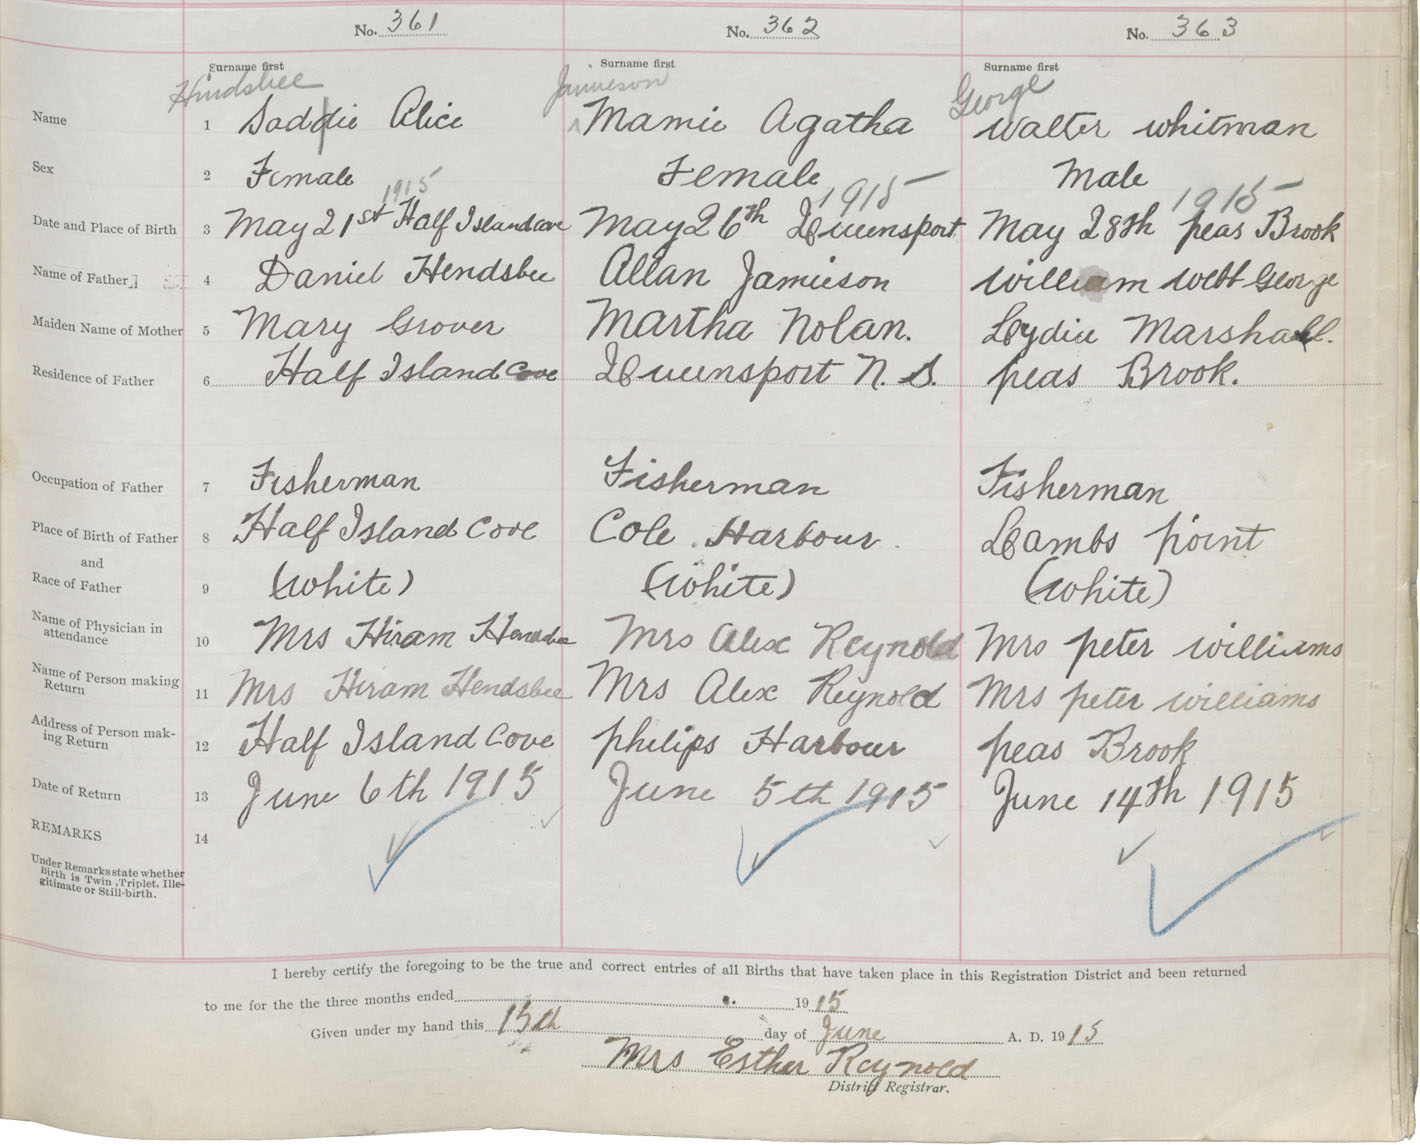 No. 361 No. 362 No. 363
Surname first Surname first Surname first
Hindsbee Jamieson George
Name 1 Saddie Alice Mamie Agatha Walter Whitman
Sex 2 Female Female Male
1915 1915 1915
Date and Place of Birth 3 May 21st Half Island Cove May 26th Queensport May 28th peas Brook
Name of Father 4 Daniel Hendsbee Allan Jamieson William Webb George
Maiden Name of Mother 5 Mary Grover Martha Nolan. Lydia Marshall.
Residence of Father 6 Half Island Cove Queensport N. S. peas Brook.
Occupation of Father 7 Fisherman Fisherman Fisherman
Place of Birth of Father 8 Half Island Cove Cole Harbour Lambs point
and
Race of Father 9 (White) (White) (White)
Name of Physician in
attendance 10 Mrs Hiram Hendsbee Mrs Alex Reynold Mrs peter williams
Name of Person making
Return 11 Mrs Hiram Hendsbee Mrs Alex Reynold Mrs peter williams
Address of Person mak-
ing Return 12 Half Island Cove philips Harbour peas Brook
Date of Return 13 June 6th 1915 June 5th 1915 June 14th 1915
REMARKS 14
Under Remarks state whether
Birth is Twin, Triplet, Ille-
gitimate or Still-birth.
I hereby certify the foregoing to be the true and correct entries of all Births that have taken place in this Registration District and been returned
to me for the the three months ended 1915
Given under my hand this 15th day of June A. D. 1915
Mrs Esther Reynold
District Registrar.